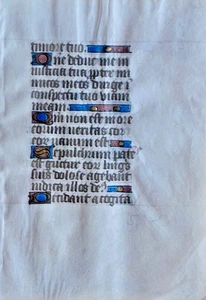 timore tuo.
Dne deduc me in
iusticia tua, ppter ini
micos meos dirige i
conspectu tuo viam
meam.
Qm non est i ore
eorum veritas cor
eorum vanum est
Sepulchrum pate
est guttur eor lingis
suis dolose agebant
iudica illos de
Decidant a cogita